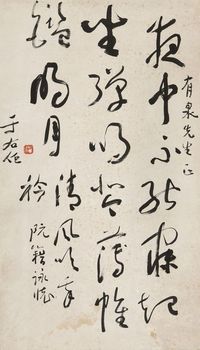 有泉先生正
夜中不能寐起
坐彈鳴琴薄帷
鑑明月
清風吹我
襟 阮籍詠懷
于右任